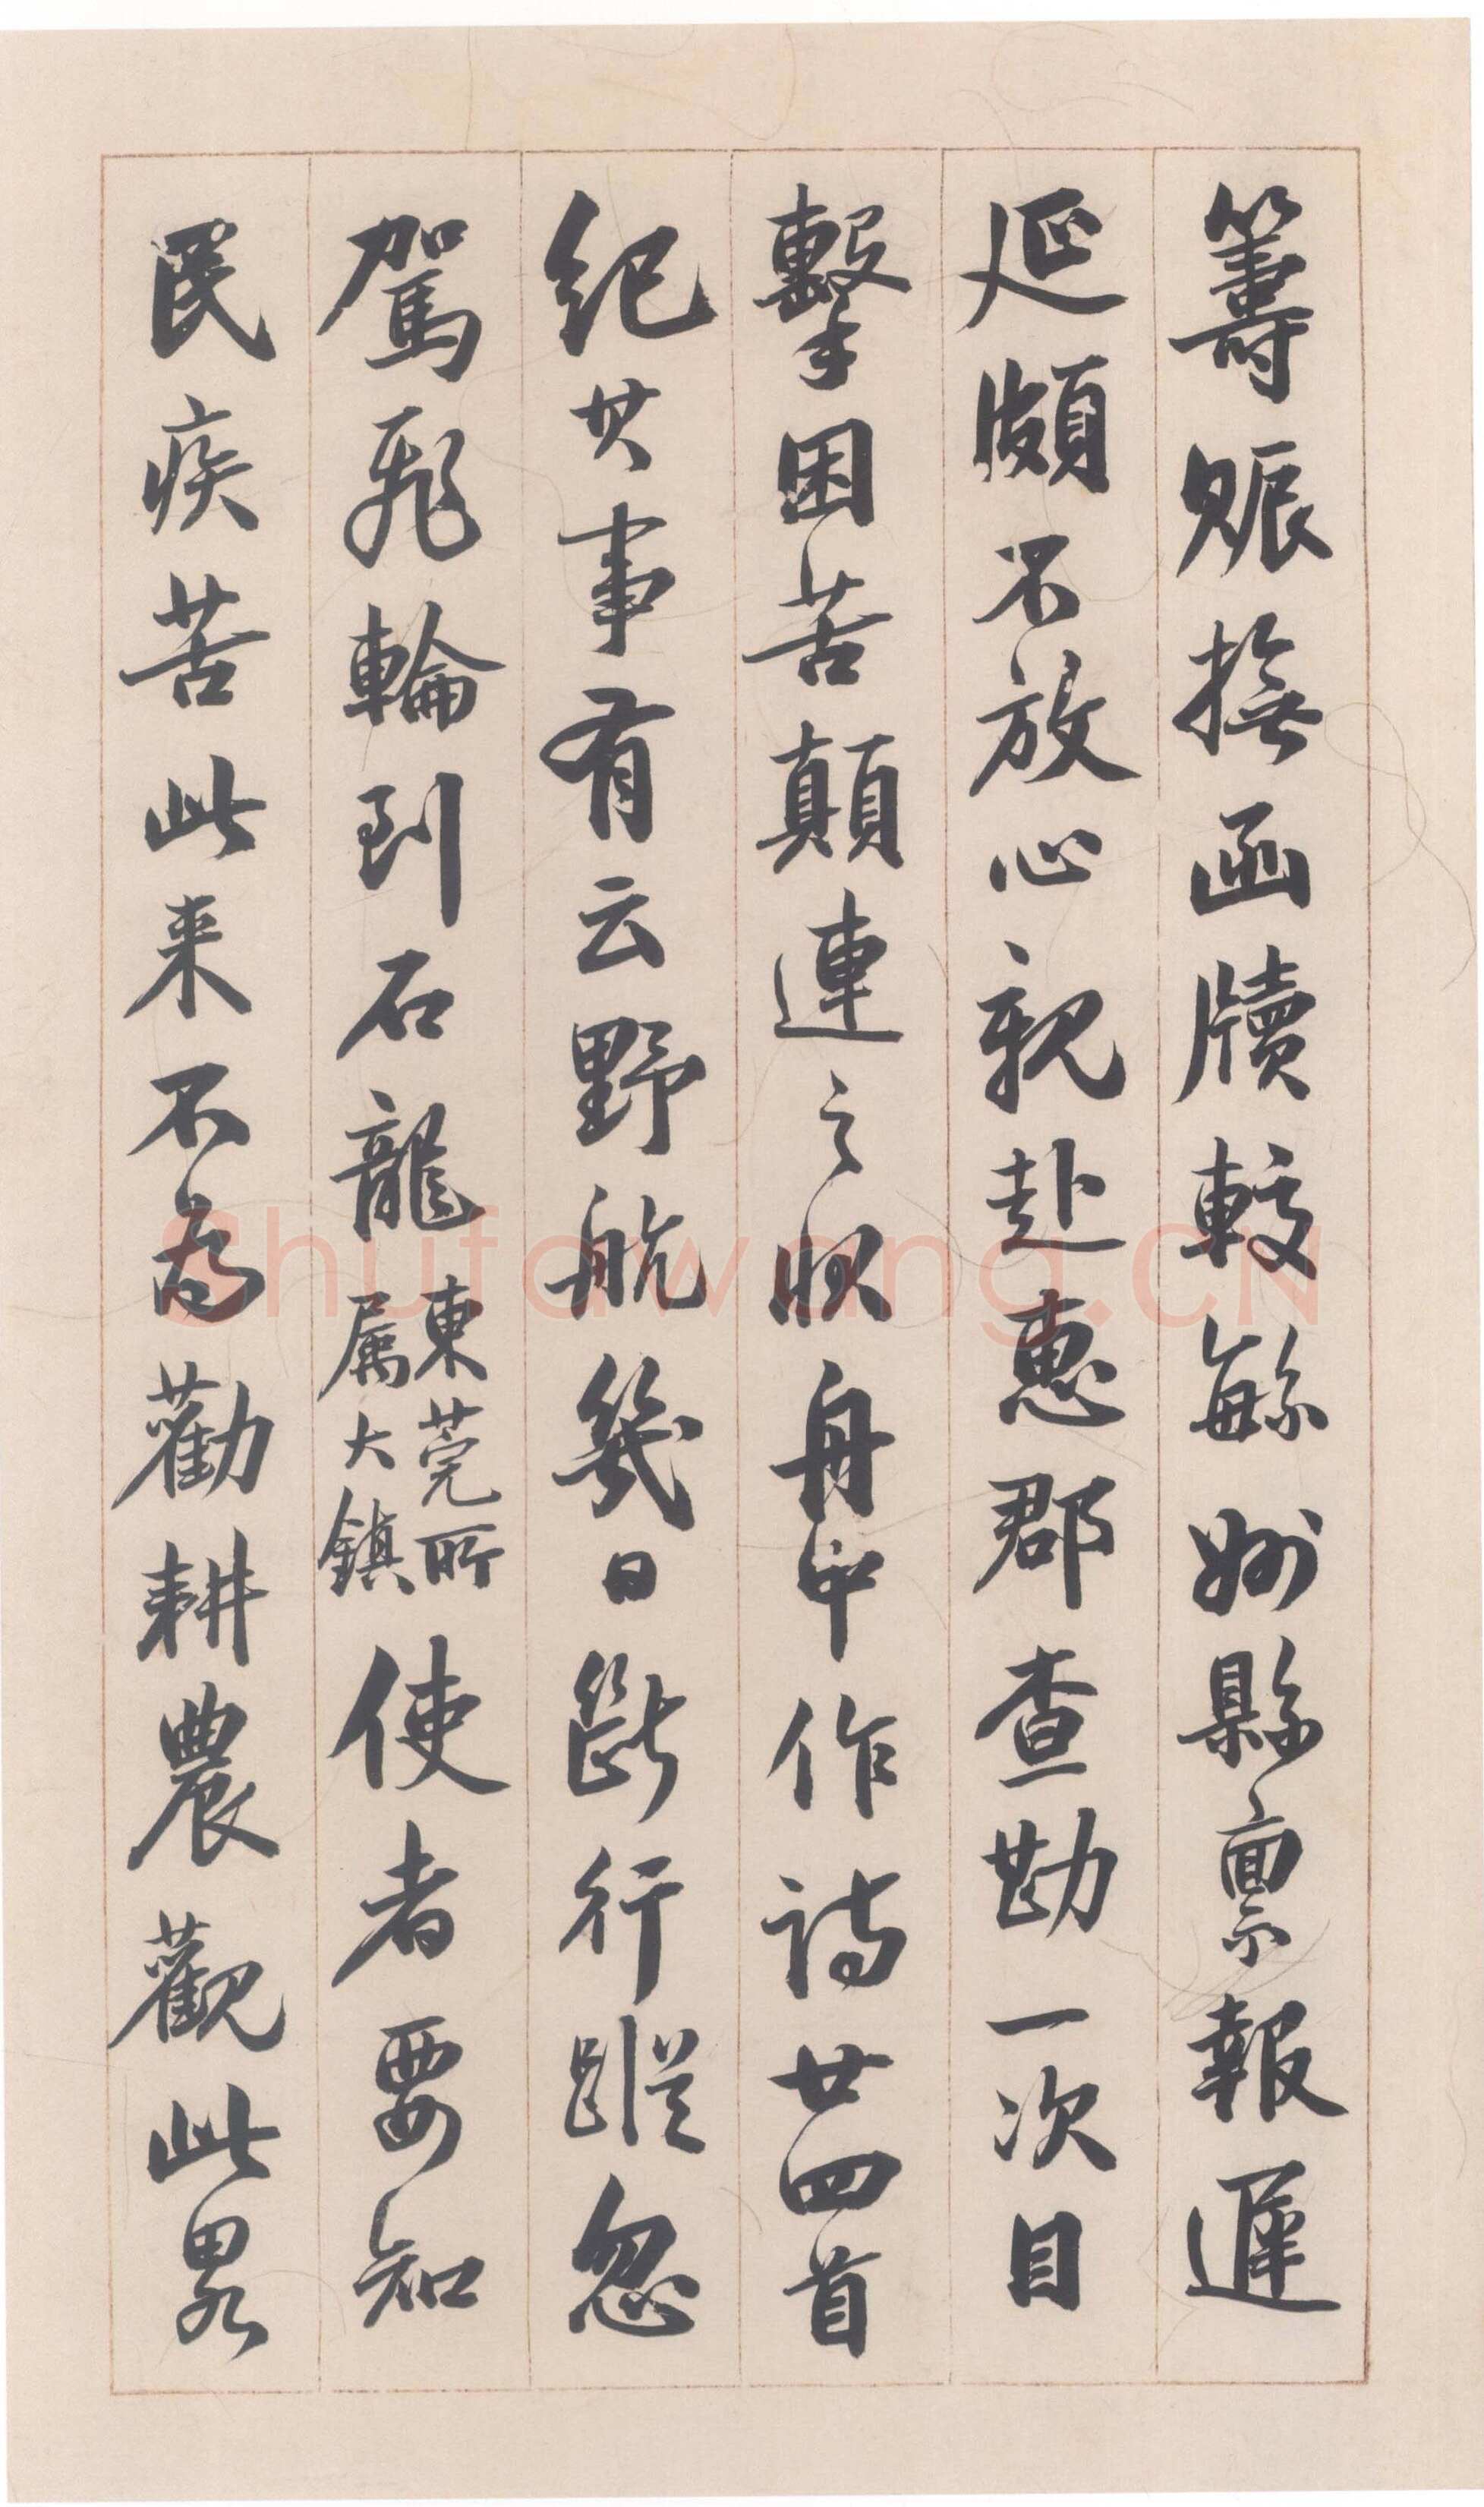 籌賑撫函牘較繇州縣禀報遲
延頗不放心親赴惠郡查勘一次目
擊困苦顛連之狀舟中作詩廿四首
紀其事有云野航幾日斷行蹤忽
駕飛輪到石龍東莞所屬大鎮使者要知
民疾苦此来不為勸耕農觀此畧
Shufawang.CN